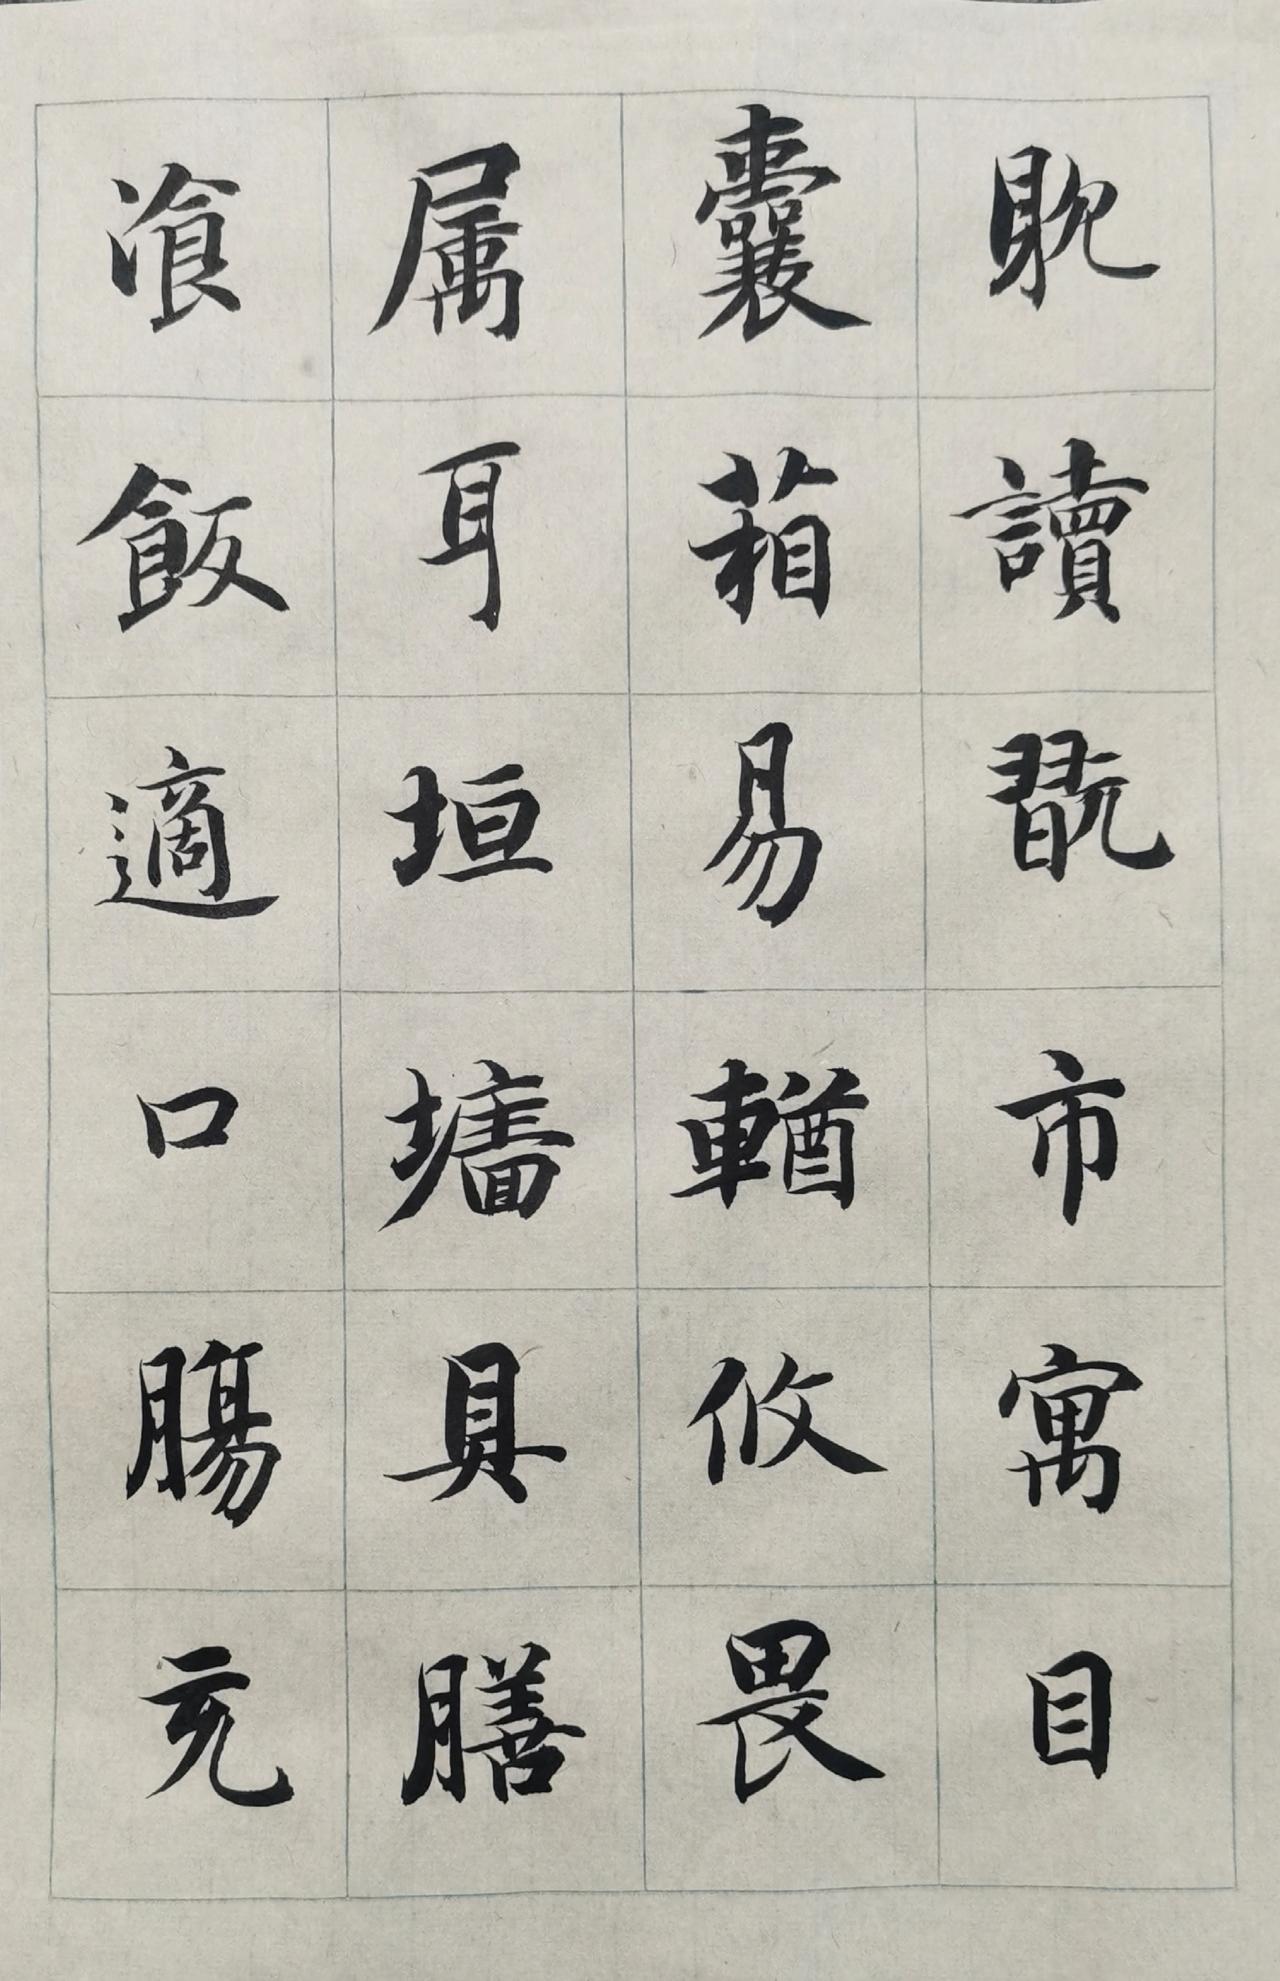 耽讀翫市寓目
囊葙易輶攸畏
属耳垣墻具膳
飡飯適口腸充